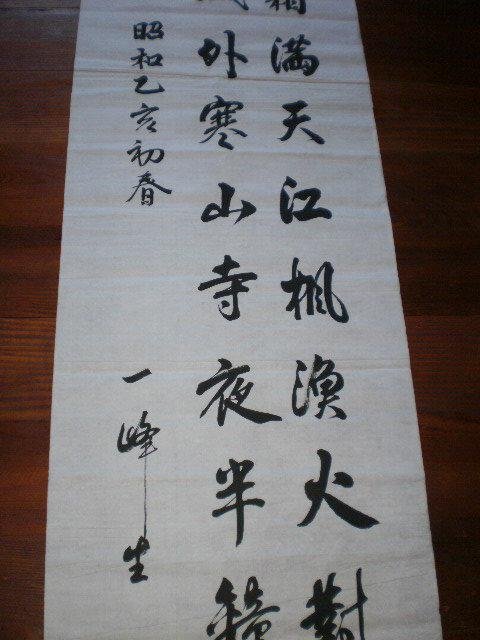 霜満天江楓漁火對
城外寒山寺夜半鐘
昭和乙亥初春
一峰生